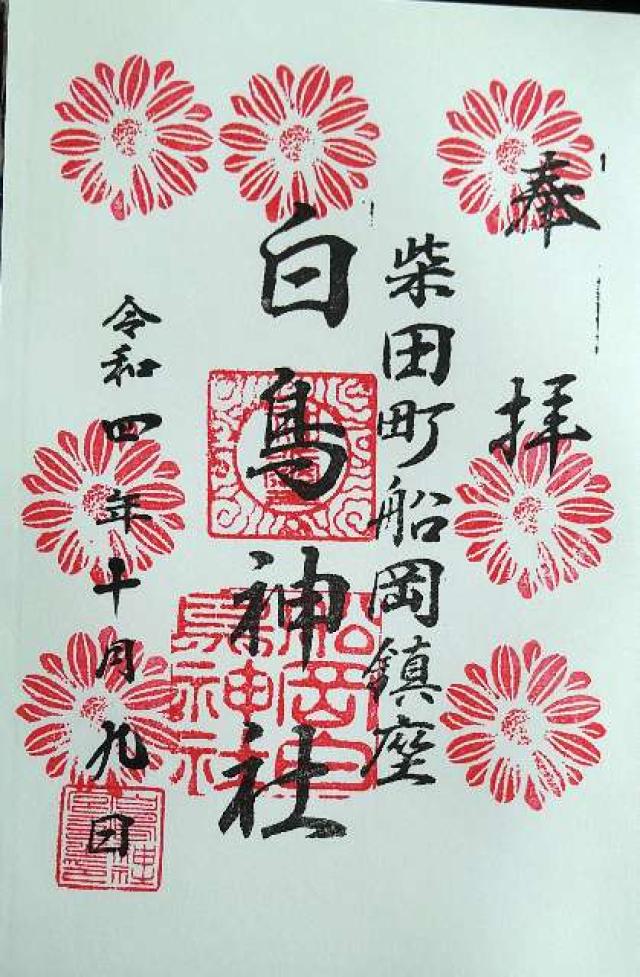 奉拝
柴田町船岡鎮座
白鳥神社
令和四年十月九日
船岡白鳥神社